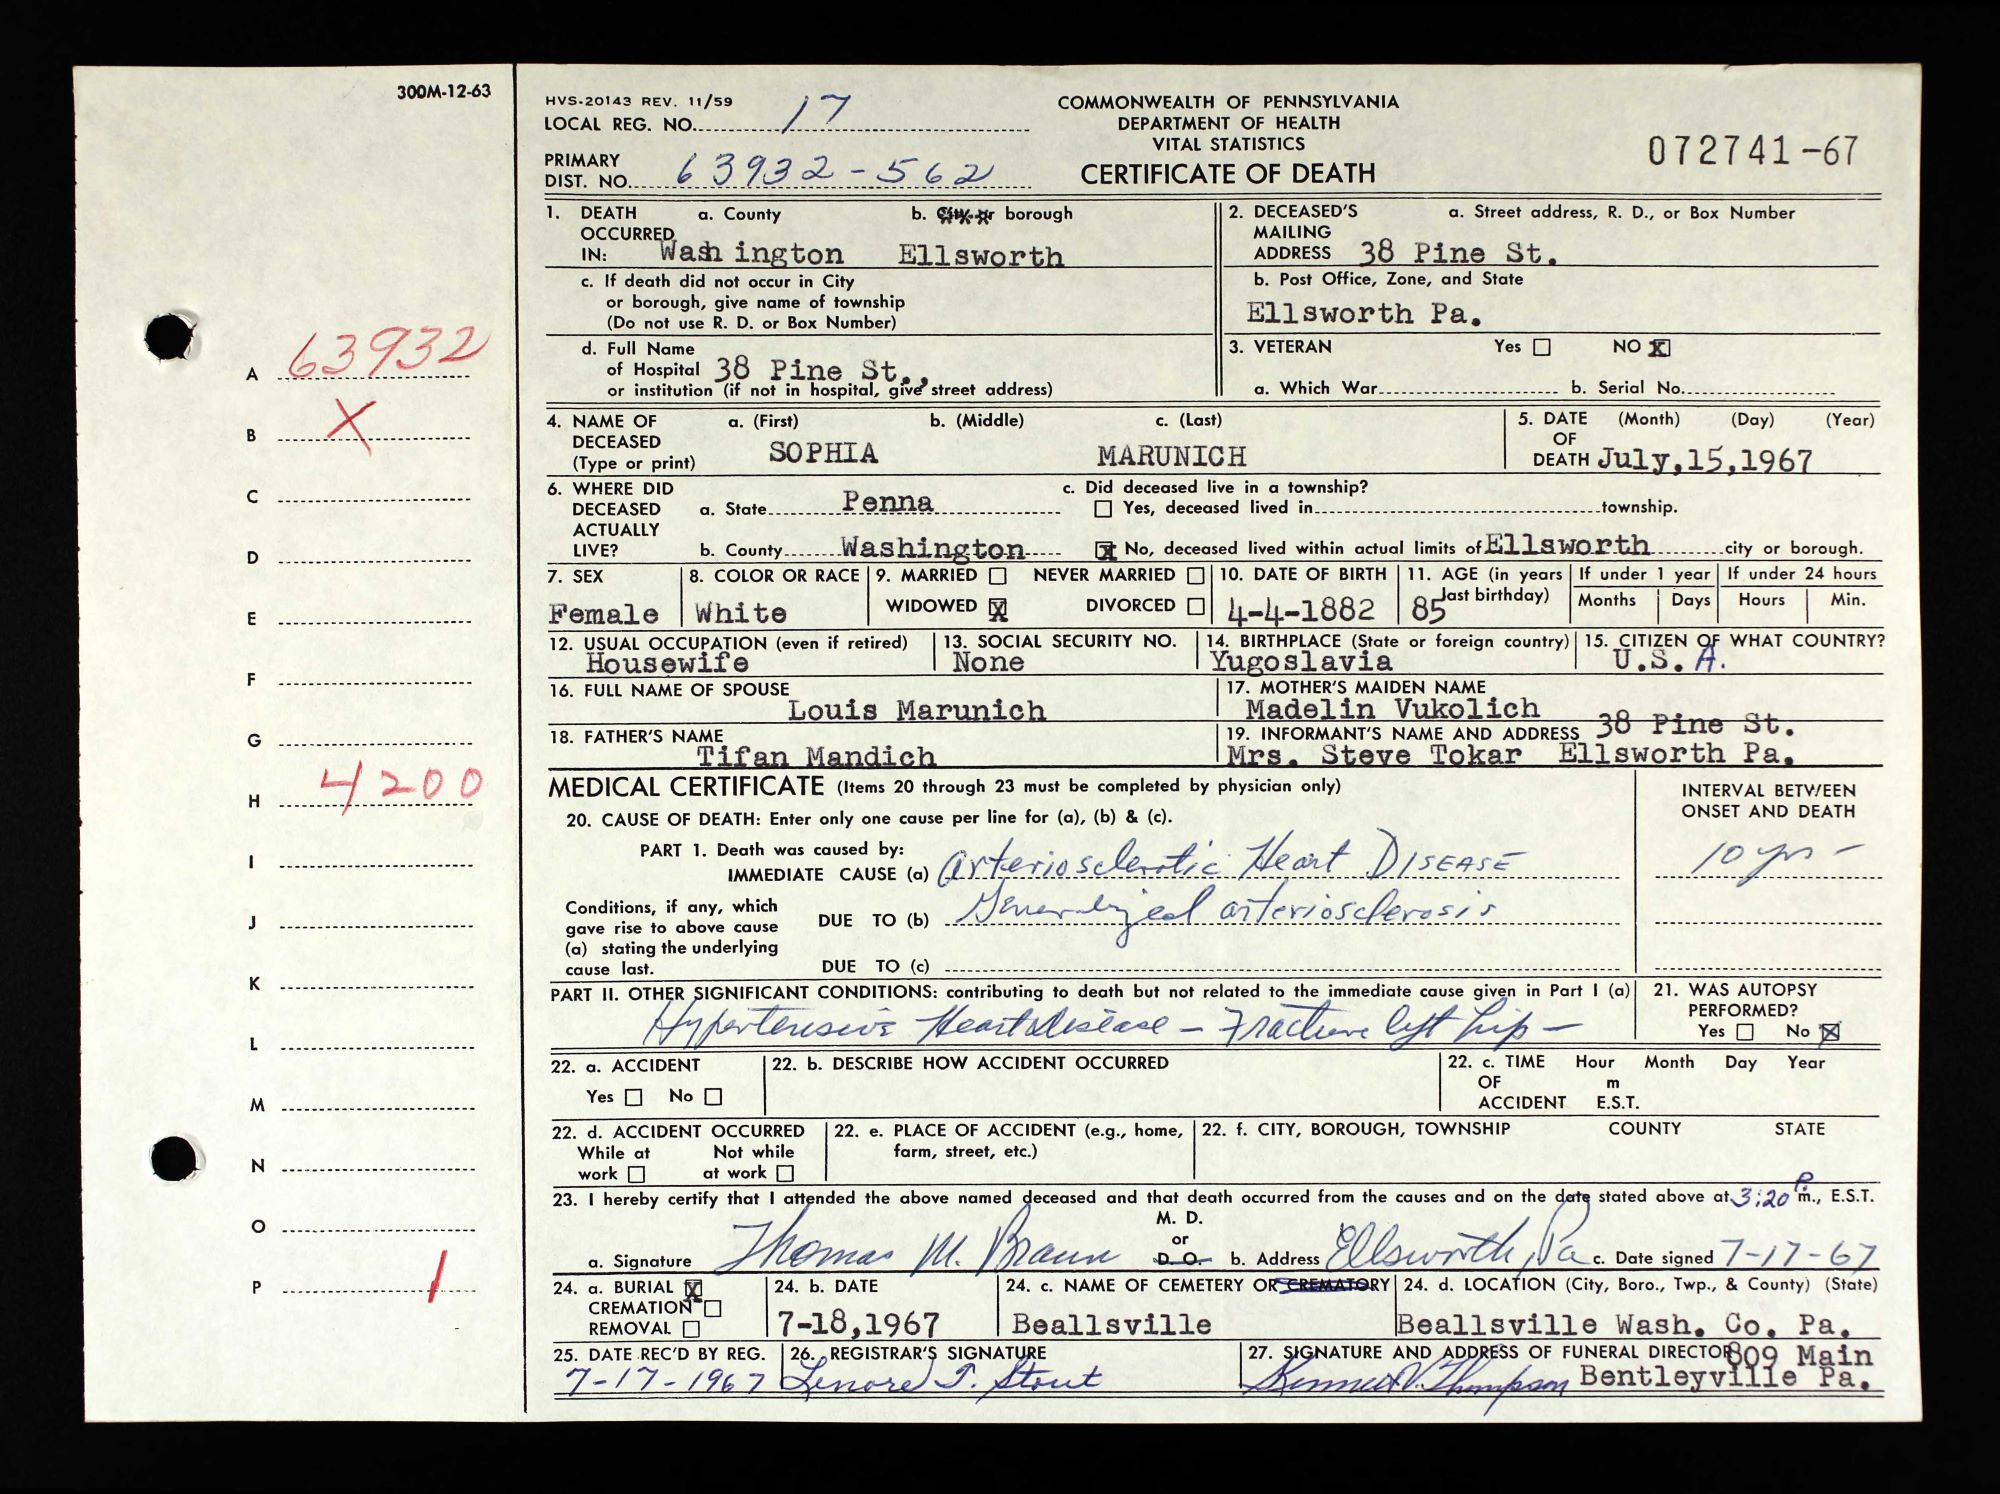 300M-12-63
HVS-20143 REV. 11/59
LOCAL REG. NO. 17
COMMONWEALTH OF PENNSYLVANIA
DEPARTMENT OF HEALTH
VITAL STATISTICS
CERTIFICATE OF DEATH
072741-67
PRIMARY
DIST. NO. 63932-562
1. DEATH OCCURRED IN: a. County Washington b. City or borough Ellsworth
c. If death did not occur in City
or borough, give name of township
(Do not use R. D. or Box Number)
d. Full Name
of Hospital 38 Pine St.,
or institution (if not in hospital, give street address)
2. DECEASED'S MAILING ADDRESS a. Street address, R. D., or Box Number
38 Pine St.
b. Post Office, Zone, and State
Ellsworth Pa.
3. VETERAN Yes NO X
a. Which War b. Serial No.
4. NAME OF DECEASED (Type or print) a. (First) b. (Middle) c. (Last)
SOPHIA MARUNICH
5. DATE OF DEATH (Month) (Day) (Year)
July,15,1967
6. WHERE DID DECEASED ACTUALLY LIVE? a. State Penna
b. County Washington
c. Did deceased live in a township?
Yes, deceased lived in township.
X No, deceased lived within actual limits of Ellsworth city or borough.
7. SEX Female
8. COLOR OR RACE White
9. MARRIED NEVER MARRIED
WIDOWED X DIVORCED
10. DATE OF BIRTH 4-4-1882
11. AGE (in years last birthday) 85
If under 1 year Months Days
If under 24 hours Hours Min.
12. USUAL OCCUPATION (even if retired) Housewife
13. SOCIAL SECURITY NO. None
14. BIRTHPLACE (State or foreign country) Yugoslavia
15. CITIZEN OF WHAT COUNTRY? U.S.A.
16. FULL NAME OF SPOUSE Louis Marunich
17. MOTHER'S MAIDEN NAME Madelin Vukolich
18. FATHER'S NAME Tifan Mandich
19. INFORMANT'S NAME AND ADDRESS 38 Pine St.
Mrs. Steve Tokar Ellsworth Pa.
MEDICAL CERTIFICATE (Items 20 through 23 must be completed by physician only)
INTERVAL BETWEEN
ONSET AND DEATH
20. CAUSE OF DEATH: Enter only one cause per line for (a), (b) & (c).
PART 1. Death was caused by:
IMMEDIATE CAUSE (a) Arteriosclerotic Heart DISEASE 10 yrs -
Conditions, if any, which
gave rise to above cause
(a) stating the underlying
cause last.
DUE TO (b) Generalized arteriosclerosis
DUE TO (c)
PART II. OTHER SIGNIFICANT CONDITIONS: contributing to death but not related to the immediate cause given in Part I (a)
Hypertensive Heart disease - Fracture left hip -
21. WAS AUTOPSY
PERFORMED?
Yes No X
22. a. ACCIDENT
Yes No
22. b. DESCRIBE HOW ACCIDENT OCCURRED
22. c. TIME OF ACCIDENT Hour Month Day Year
m
E.S.T.
22. d. ACCIDENT OCCURRED
While at work Not while at work
22. e. PLACE OF ACCIDENT (e.g., home,
farm, street, etc.)
22. f. CITY, BOROUGH, TOWNSHIP COUNTY STATE
23. I hereby certify that I attended the above named deceased and that death occurred from the causes and on the date stated above at 3:20 P.m., E.S.T.
a. Signature Thomas M. Braun M. D. or D. O. b. Address Ellsworth, Pa c. Date signed 7-17-67
24. a. BURIAL X
CREMATION
REMOVAL
24. b. DATE
7-18,1967
24. c. NAME OF CEMETERY OR CREMATORY
Beallsville
24. d. LOCATION (City, Boro., Twp., & County) (State)
Beallsville Wash. Co. Pa.
25. DATE REC'D BY REG.
7-17-1967
26. REGISTRAR'S SIGNATURE
Lenore T. Stout
27. SIGNATURE AND ADDRESS OF FUNERAL DIRECTOR 809 Main
Kenneth V. Thompson Bentleyville Pa.
A 63932
B X
C
D
E
F
G
H 4200
I
J
K
L
M
N
O
P 1